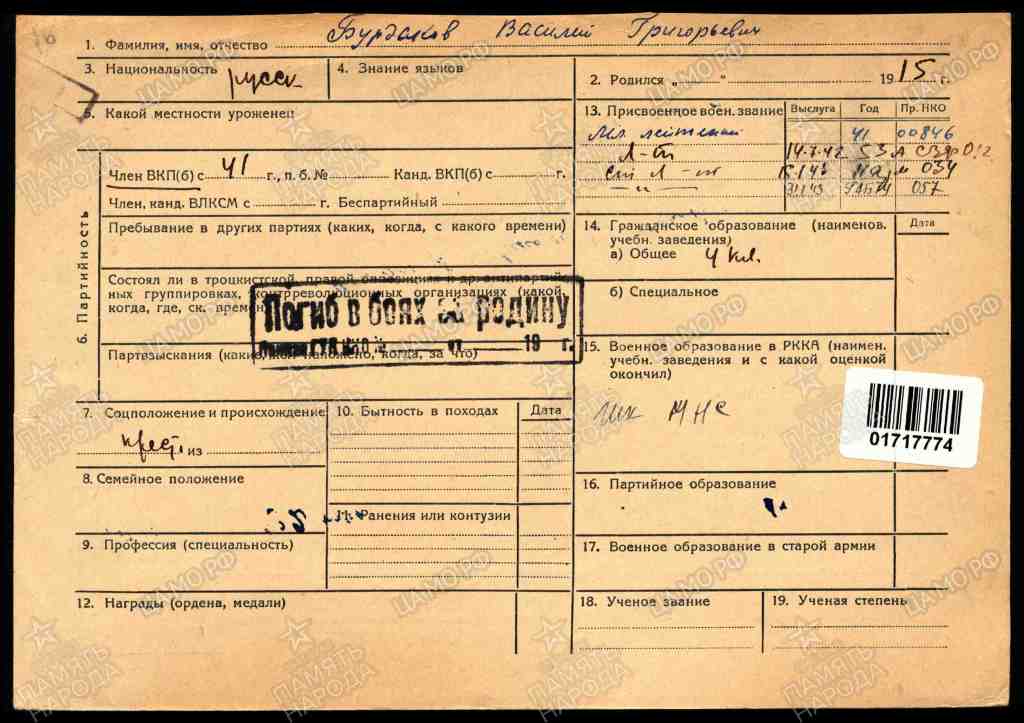 1. Фамилия, имя, отчество Бурдаков Василий Григорьевич
3. Национальность русск.
4. Знание языков
2. Родился „ " 1915 г.
5. Какой местности уроженец
13. Присвоенное воен. звание Выслуга Год Пр. НКО
Мл. лейтенант 41 00846
Л-т 14.7.42 СЗФ 012
ст Л-т 034
—„— 057
6. Партийность
Член ВКП(б) с 41 г., п. б. № Канд. ВКП(б) с г.
Член, канд. ВЛКСМ с г. Беспартийный
Пребывание в других партиях (каких, когда, с какого времени)
Состоял ли в троцкистской, правой оппозиции и др. антипартий-
ных группировках, контрреволюционных организациях (какой,
когда, где, ск. времен
Погиб в боях за родину
19 г.
Партвзыскания (каки когда, за что)
14. Гражданское образование (наименов.
учебн. заведения)
Дата
а) Общее 4 кл.
б) Специальное
15. Военное образование в РККА (наимен.
учебн. заведения и с какой оценкой
окончил)
МНС
01717774
7. Соцположение и происхождение
крест. из
8. Семейное положение
9. Профессия (специальность)
10. Бытность в походах Дата
11. Ранения или контузии
16. Партийное образование
17. Военное образование в старой армии
12. Награды (ордена, медали)
18. Ученое звание
19. Ученая степень
ЦАМО РФ
ПАМЯТЬ НАРОДА